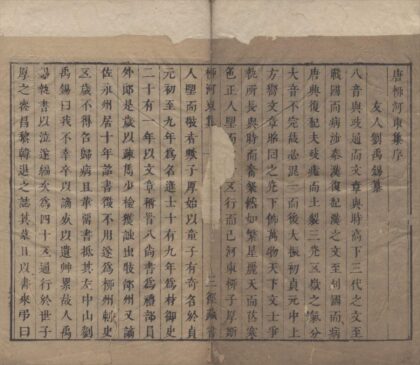 唐柳河東集序
友人劉禹錫纂
八音與政通而文章與時高下三代之文至
戰國而病涉秦漢復起漢之文至列國而病
唐興復起夫政厖而土裂三光五嶽之氣分
大音不完故必混一而後大振初貞元中上
方嚮文章昭回之光下飾萬物天下文士爭
執所長與時而奮粲然如繁星麗天而芒寒
色正人望而五行而已河東柳子厚斯
柳河東集 三徑藏書
人望而敬者歟子厚始以童子有奇名於貞
元初至九年為名進士十有九年為材御史
二十有一年以文章稱首入尚書為禮部員
外郎是歲以疎雋少檢獲訕出牧邵州又謫
佐永州居十年詔書徵不用遂為柳州刺史
五歲不得召歸病且革留書抵其友中山劉
禹錫曰我不幸卒以謫死以遺草累故人禹
錫執書以泣遂編次為四十五通行於世子
厚之喪昌黎韓退之誌其墓且以書來弔曰